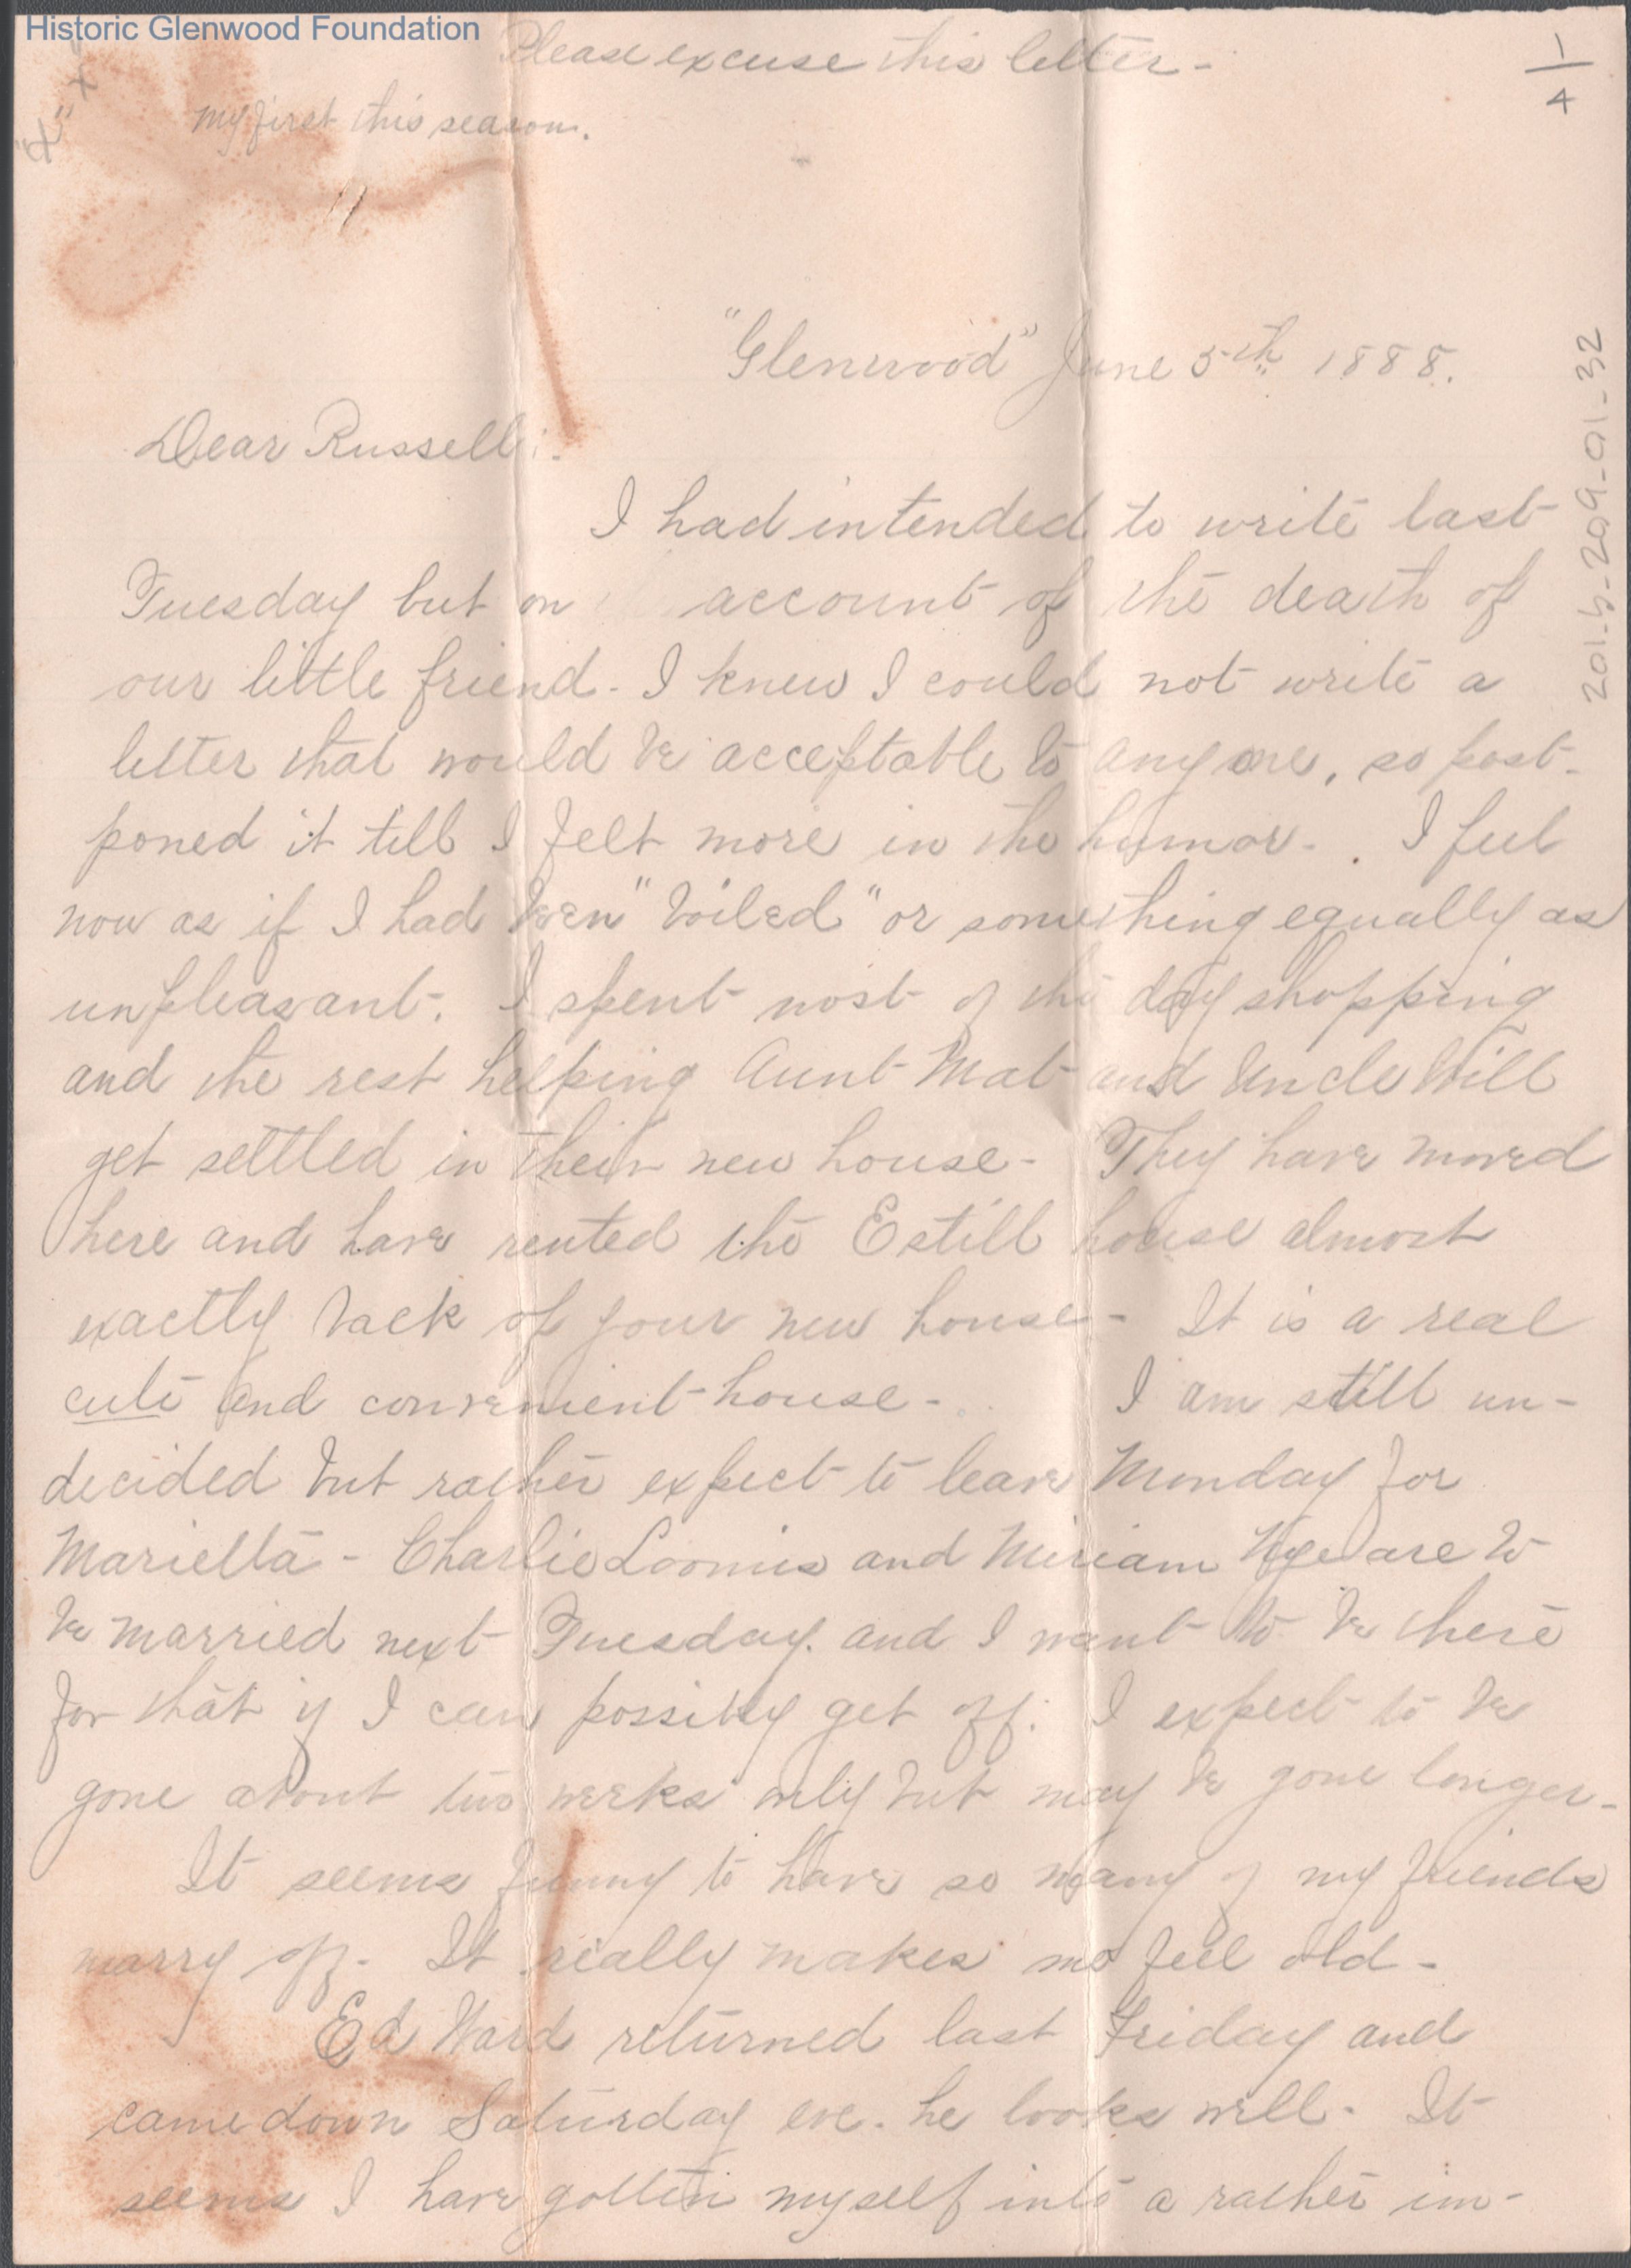 Historic Glenwood Foundation
Please excuse this letter -
1/4
"x" x
my first this season.
"Glenwood" June 5th 1888.
201-5-209-01-32
Dear Russell:-
I had intended to write last
Tuesday but on account of the death of
our little friend - I knew I could not write a
letter that would be acceptable to any one, so post-
poned it till I felt more in the humor - . I feel
now as if I had been "boiled" or something equally as
unpleasant. I spent most of the day shopping
and the rest helping Aunt Mat and Uncle Will
get settled in their new house - They have moved
here and have rented the Estill house almost
exactly back of your new house - It is a real
cute and convenient house - I am still un-
decided but rather expect to leave Monday for
Marietta - Charlie Loomis and Miriam Nye are to
be married next Tuesday. and I want to be there
for that if I can possibly get off. I expect to be
gone about two weeks only but may be gone longer -
It seems funny to have so many of my friends
marry off - It really makes me feel old -
Ed Ward returned last Friday and
came down Saturday eve. he looks well - It
seems I have gotten myself into a rather im-